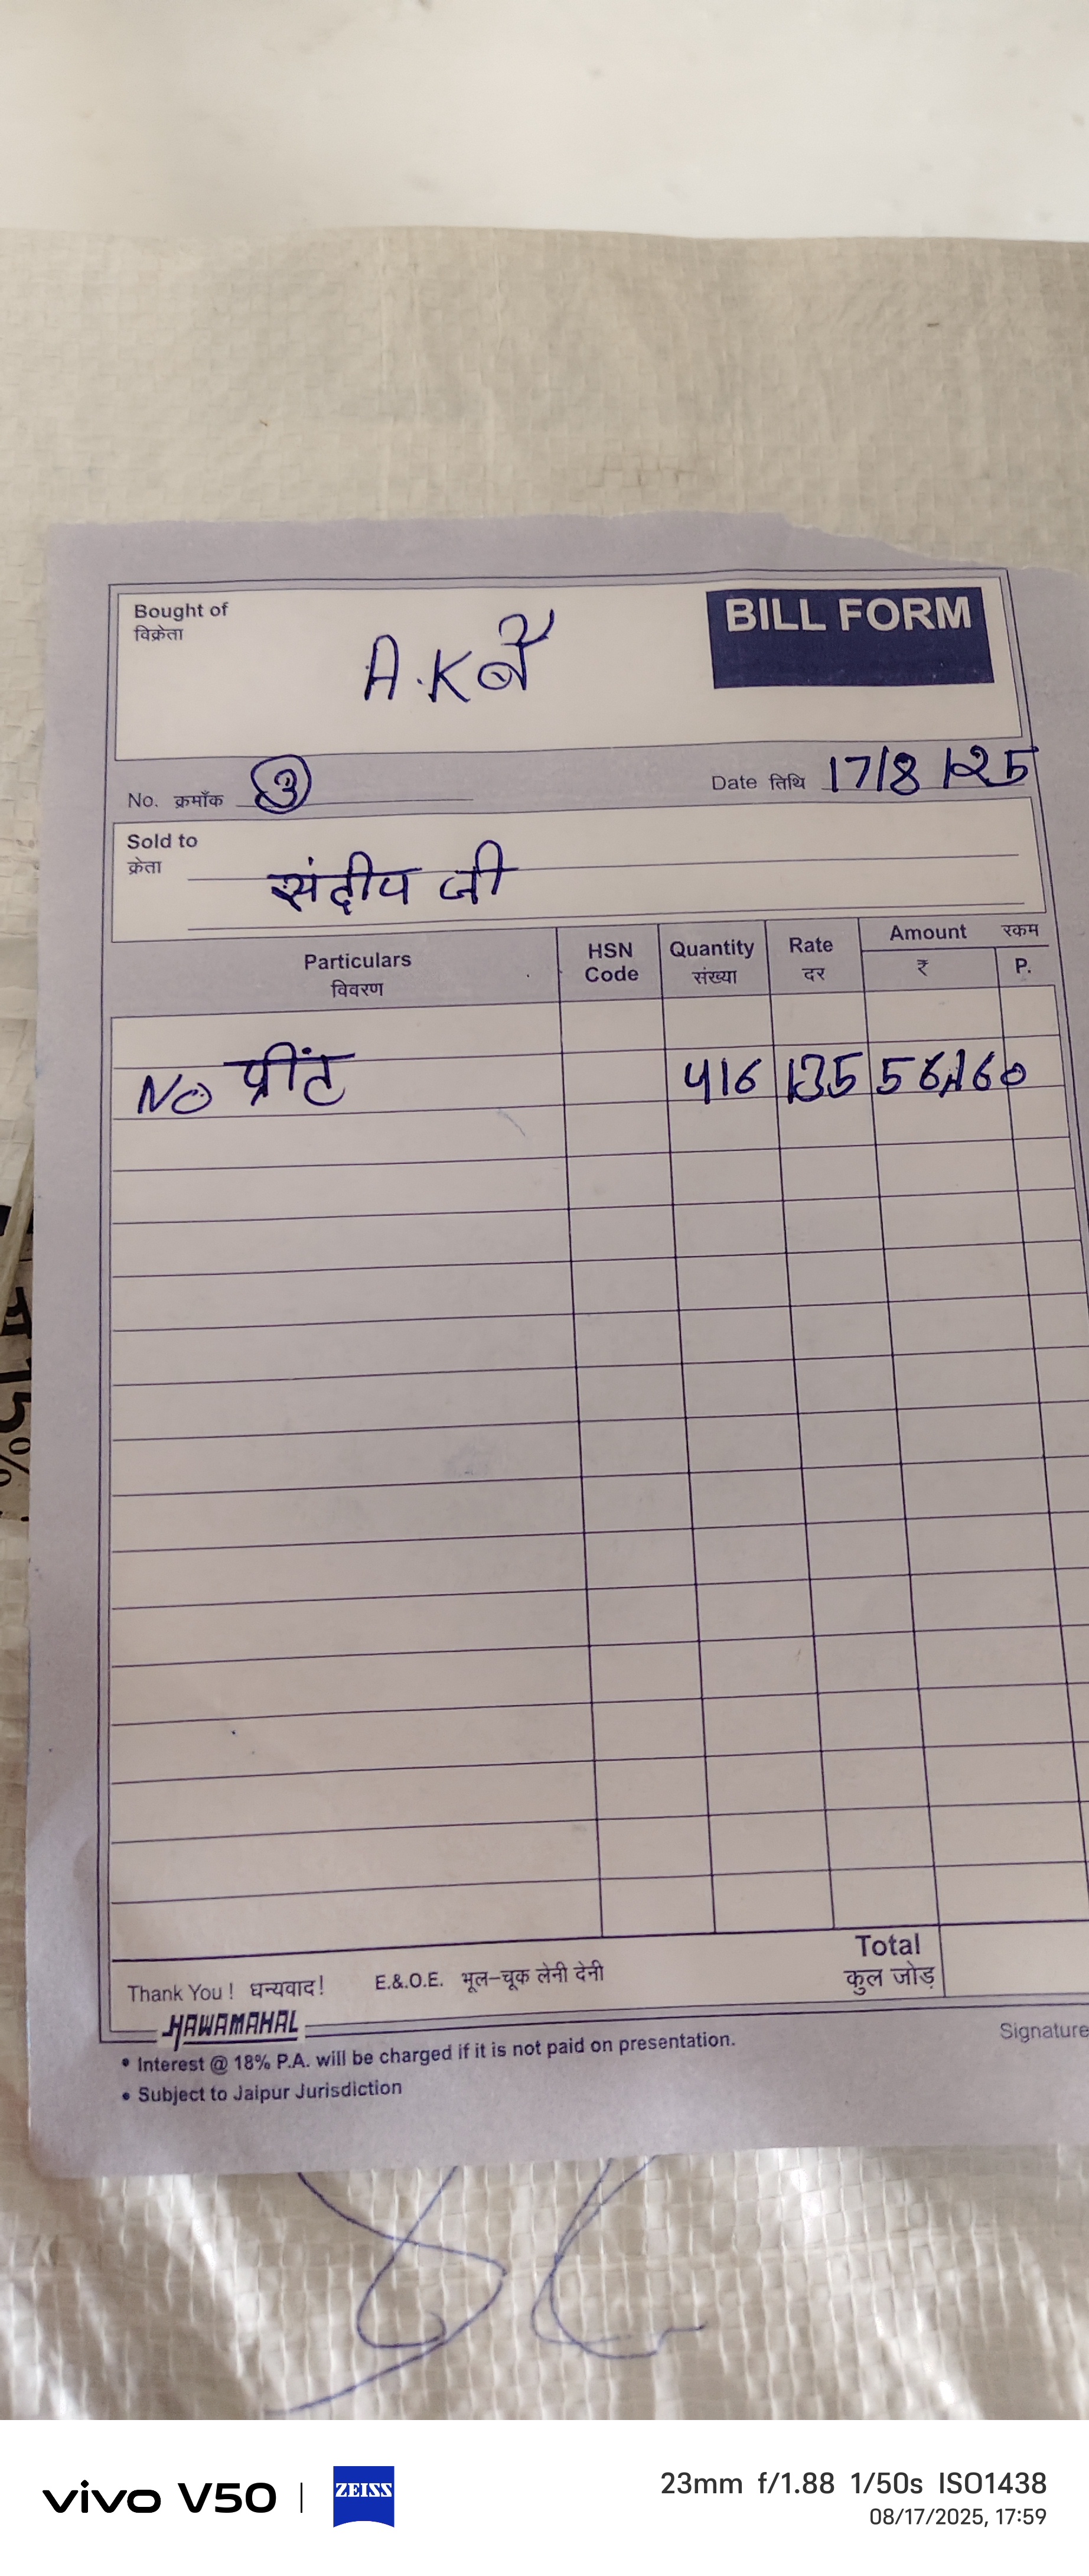 Bought of
विक्रेता
BILL FORM
A.K
No. क्रमाँक 3
Date तिथि 17/8/25
Sold to
क्रेता
संदीप जी
Particulars विवरण HSN Code Quantity संख्या Rate दर Amount रकम ₹ P.
No प्रींट 416 135 56160
Total
कुल जोड़
Thank You ! धन्यवाद ! E.&.O.E. भूल-चूक लेनी देनी
HAWAMAHAL
Signature
• Interest @ 18% P.A. will be charged if it is not paid on presentation.
• Subject to Jaipur Jurisdiction
15%
vivo V50 | ZEISS
23mm f/1.88 1/50s ISO1438
08/17/2025, 17:59